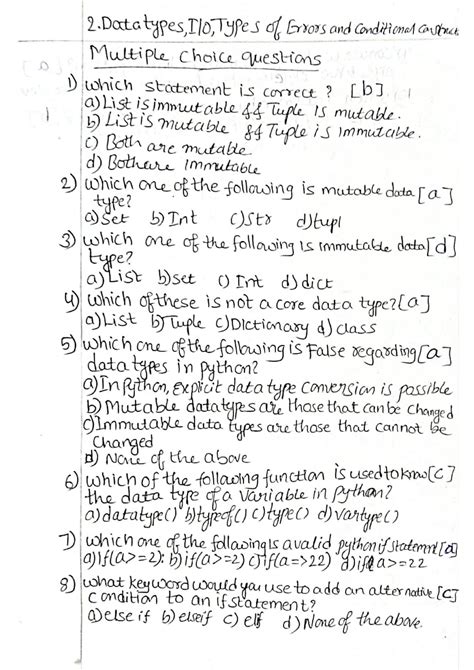 2.Datatypes,I/O,Types of Errors and Conditional Construct
Multiple Choice questions
1) which statement is correct ? [b]
a) List is immutable && Tuple is mutable.
b) List is mutable && Tuple is Immutable.
c) Both are mutable
d) Both are Immutable
2) Which one of the following is mutable data [a]
type?
a) Set b) Int c) Str d) tupl
3) which one of the following is immutable data [d]
type?
a) List b) set c) Int d) dict
4) which of these is not a core data type? [a]
a) List b) Tuple c) Dictionary d) class
5) which one of the following is False regarding [a]
data types in python?
a) In Python, explicit data type conversion is possible
b) Mutable datatypes are those that can be changed
c) Immutable data types are those that cannot be
changed
d) None of the above
6) which of the following function is used to know [c]
the data type of a variable in python?
a) datatype() b) typeof() c) type() d) vartype()
7) which one of the following is a valid python if statement [a]
a) if(a>=2): b) if(a>=2) c) if(a=>22) d) if a>=22
8) what keyword would you use to add an alternative [c]
condition to an if statement?
a) else if b) elseif c) elif d) None of the above.